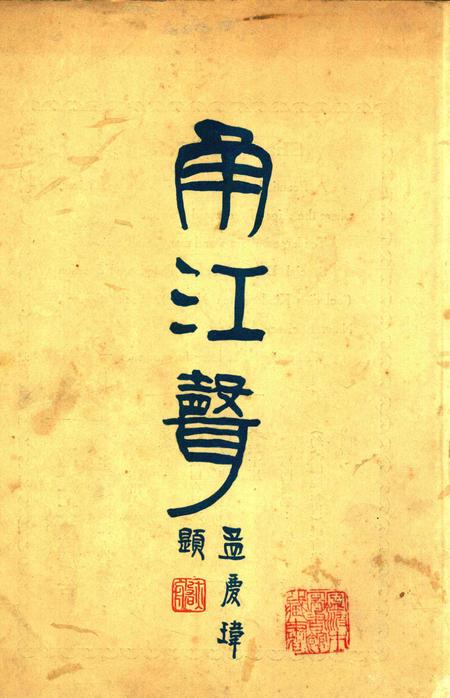 甬江聲
孟慶瑋
題